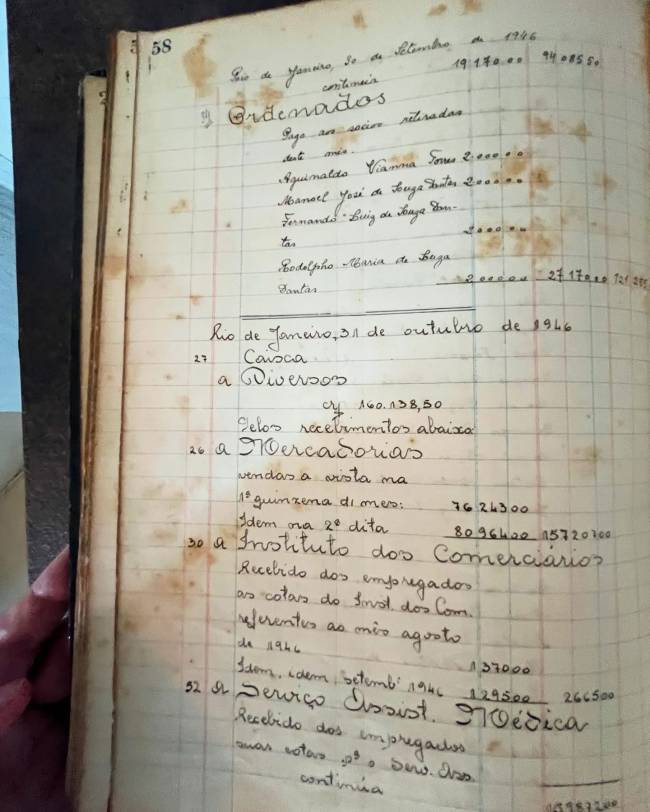 58
Rio de Janeiro, 30 de Setembro de 1946
continuia 19170.00 94085.50
Ordenados
Pago aos socios retiradas
deste mês.
Aguinaldo Vianna Torres 2.000.00
Manoel José de Souza Dantas 2.000.00
Fernando Luiz de Souza Dan-
tas 2.000.00
Rodolpho Maria de Souza
Dantas 2.000.00 27170.00
Rio de Janeiro, 31 de outubro de 1946
27 Caixa
a Diversos
cr$ 160.138,50
Pelos recebimentos abaixo
26 a Mercadorias
vendas a vista na
1ª quinzena di mes: 7624300
Idem na 2ª dita 8096400 15720700
30 a Instituto dos Comerciários
Recebido dos empregados
as cotas do Inst. dos Com.
referentes ao mês agosto
de 1946 137000
Idem, idem, setemb: 1946 129500 266500
52 a Serviço Assist. Médica
Recebido dos empregados
suas cotas pº o Serv. Ass.
continúa 15987200